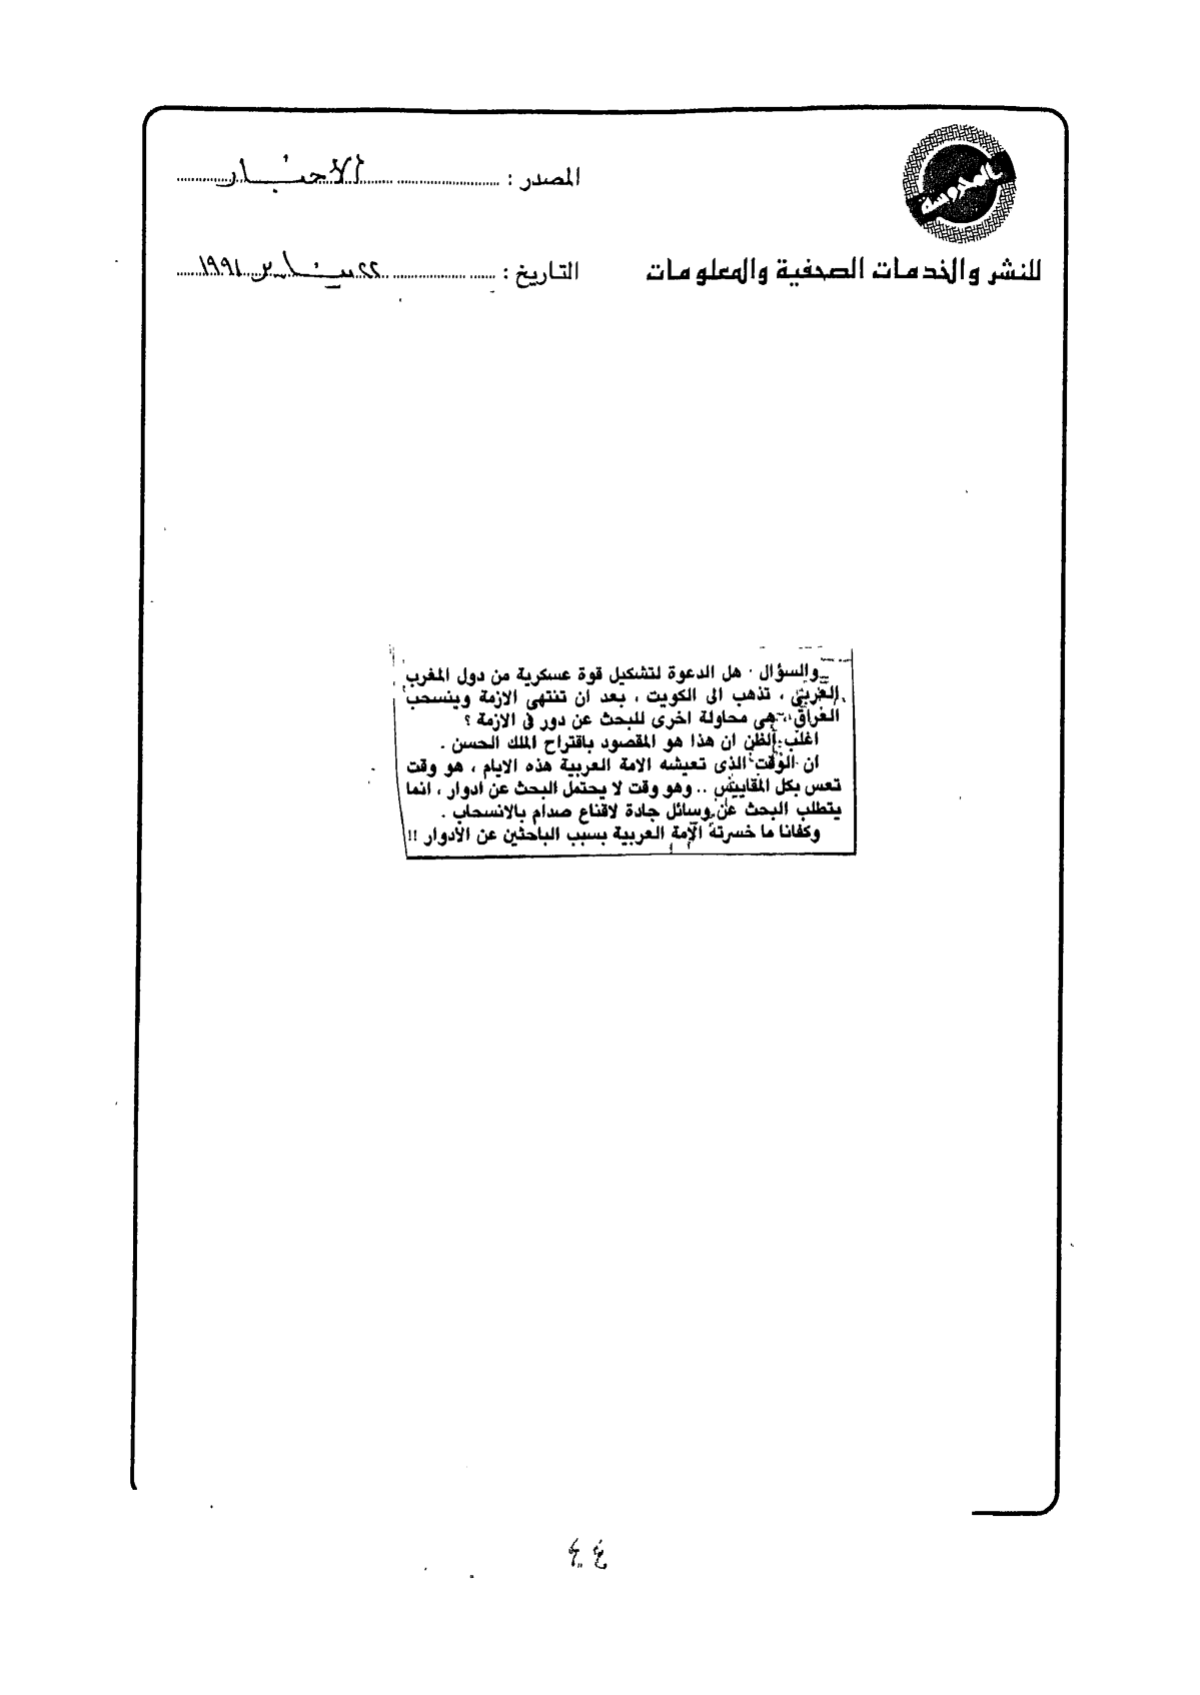 بالمحروسة
للنشر والخدمات الصحفية والمعلومات
المصدر : الأخبار
التاريخ : ٢٢ يناير ١٩٩١
والسؤال . هل الدعوة لتشكيل قوة عسكرية من دول المغرب
العربى ، تذهب الى الكويت ، بعد ان تنتهى الازمة وينسحب
العراق ، هى محاولة اخرى للبحث عن دور فى الازمة ؟
اغلب الظن ان هذا هو المقصود باقتراح الملك الحسن .
ان الوقت الذى تعيشه الامة العربية هذه الايام ، هو وقت
تعس بكل المقاييس .. وهو وقت لا يحتمل البحث عن ادوار ، انما
يتطلب البحث عن وسائل جادة لاقناع صدام بالانسحاب .
وكفانا ما خسرته الامة العربية بسبب الباحثين عن الادوار !!